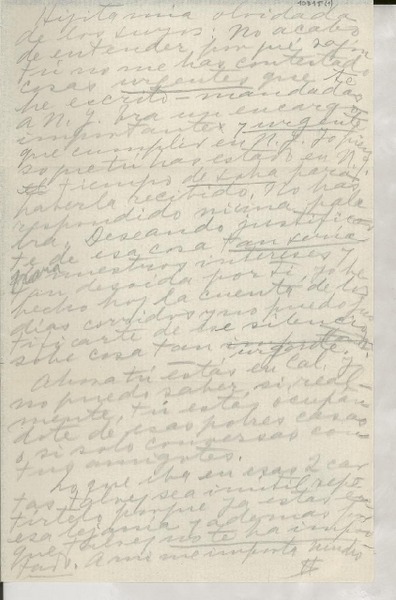 10815(1)
Hijita mía olvidada
de los suyos: No acabo
de entender, por qué razón
tú no me has contestado
cosas urgentes que te
he escrito — mandadas
a N. Y. Era un encargo
importante y urgente
que cumplir en N. Y. Yo pien-
so que tú has estado en N. Y.
tiempo de sobra para
haberla recibido. No has
respondido ni una pala-
bra. Deseando justificar-
te de esa cosa tan seria
para nuestros intereses y
tan desoída por ti, yo he
hecho hoy la cuenta de los
días corridos y no puedo jus-
tificarte de ese silencio
sobre cosa tan urgente.
Ahora tú estás en Cal. y
no puedo saber, si, real-
mente, tú estás ocupán-
dote de esas pobres casas
o si solo conversas con
tus amigotes.
Lo que iba en esas 2 car-
tas, tal vez sea inútil repe-
tirtelo porque ya estás en
esa lejanía y además por-
que tal vez no te ha impor-
tado. A mí me importa mucho
II